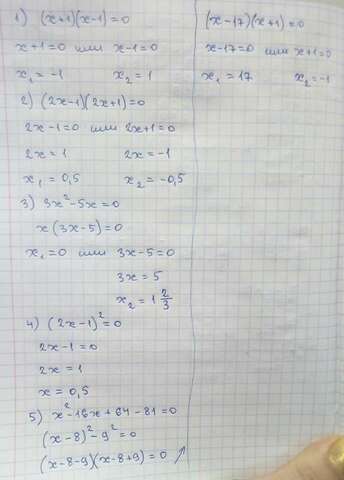 1) (x+1)(x-1)=0
x+1=0 или x-1=0
x₁=-1 x₂=1
2) (2x-1)(2x+1)=0
2x-1=0 или 2x+1=0
2x=1 2x=-1
x₁=0,5 x₂=-0,5
3) 3x²-5x=0
x(3x-5)=0
x₁=0 или 3x-5=0
3x=5
x₂=1 2/3
4) (2x-1)²=0
2x-1=0
2x=1
x=0,5
5) x²-16x+64-81=0
(x-8)²-9²=0
(x-8-9)(x-8+9)=0 ↗
(x-17)(x+1)=0
x-17=0 или x+1=0
x₁=17 x₂=-1